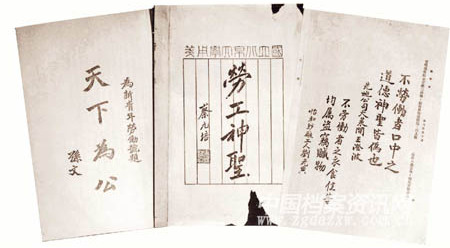 為新青年勞働號題
天下為公
孫文
勞工神聖
蔡元培
不勞働者口中之
道德神聖皆偽也
先施公司
不勞働者之衣食住等
均屬盜竊贓物
中国档案资讯网
www.zgdazxw.com.cn